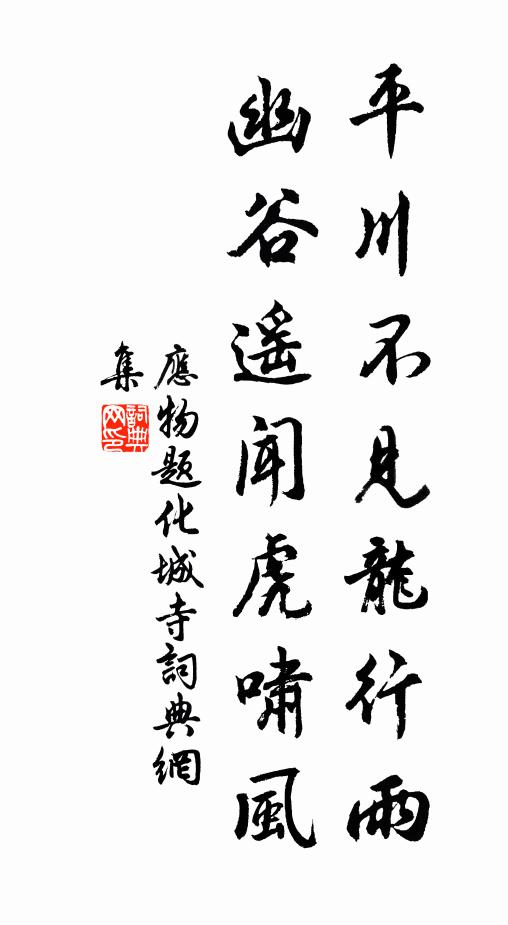 平川不見龍行雨
幽谷遥聞虎嘯風
應物題化城寺詞典網
集
詞典
网印